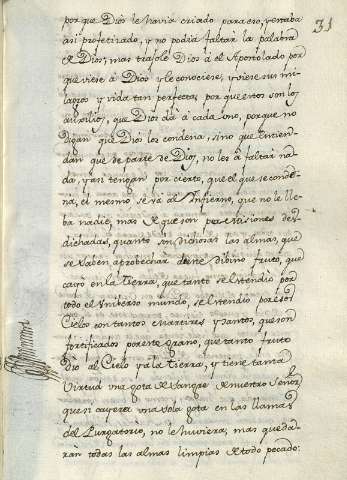 31
porque Dios le havia criado para eso, y estaba
asi profetizado, y no podia faltar la palabra
de Dios, mas trajole Dios à el Apostolado por
que viese à Dios y le conociese, y viese sus mi
lagros y vida tan perfecta, porque estos son los
auxilios, que Dios dà à cada uno, porque no
digan que Dios los condena, sino que entien
dan que de parte de Dios, no les à faltar na
da, y asi tengan por cierto, que el que se conde
na, el mesmo se và al Infierno, que no le lle
ba nadie, mas que son perdiciones des
dichadas, quanto son dichosas las almas, que
se saben aprobechar de este dibino fruto, que
cayò en la tierra, que tanto se estendiò por
todo el Umberso mundo, se estendiò por esos
Cielos con tantos martires y santos, que son
fortificados por este grano, que tanto fruto
diò al Cielo y a la Tierra, y tiene tanta
Virtud una gota de sangre de nuestro Señor,
que si cayera una sola gota en las llamas
del Purgatorio, no le huviera, mas queda
ràn todas las almas limpias de todo pecado: